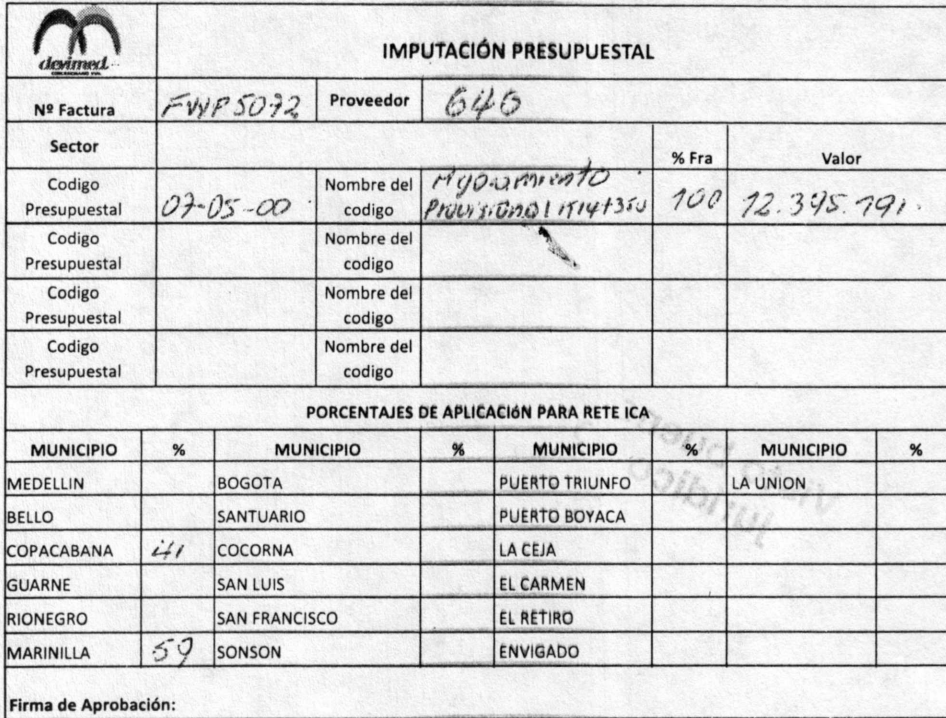 devimed
IMPUTACIÓN PRESUPUESTAL
Nº Factura FWP5072 Proveedor 646
Sector % Fra Valor
Codigo Presupuestal 07-05-00 Nombre del codigo Provisional 100 12.395.191
Codigo Presupuestal Nombre del codigo
Codigo Presupuestal Nombre del codigo
Codigo Presupuestal Nombre del codigo
PORCENTAJES DE APLICACIÓN PARA RETE ICA
MUNICIPIO % MUNICIPIO % MUNICIPIO % MUNICIPIO %
MEDELLIN BOGOTA PUERTO TRIUNFO LA UNION
BELLO SANTUARIO PUERTO BOYACA
COPACABANA 41 COCORNA LA CEJA
GUARNE SAN LUIS EL CARMEN
RIONEGRO SAN FRANCISCO EL RETIRO
MARINILLA 59 SONSON ENVIGADO
Firma de Aprobación: